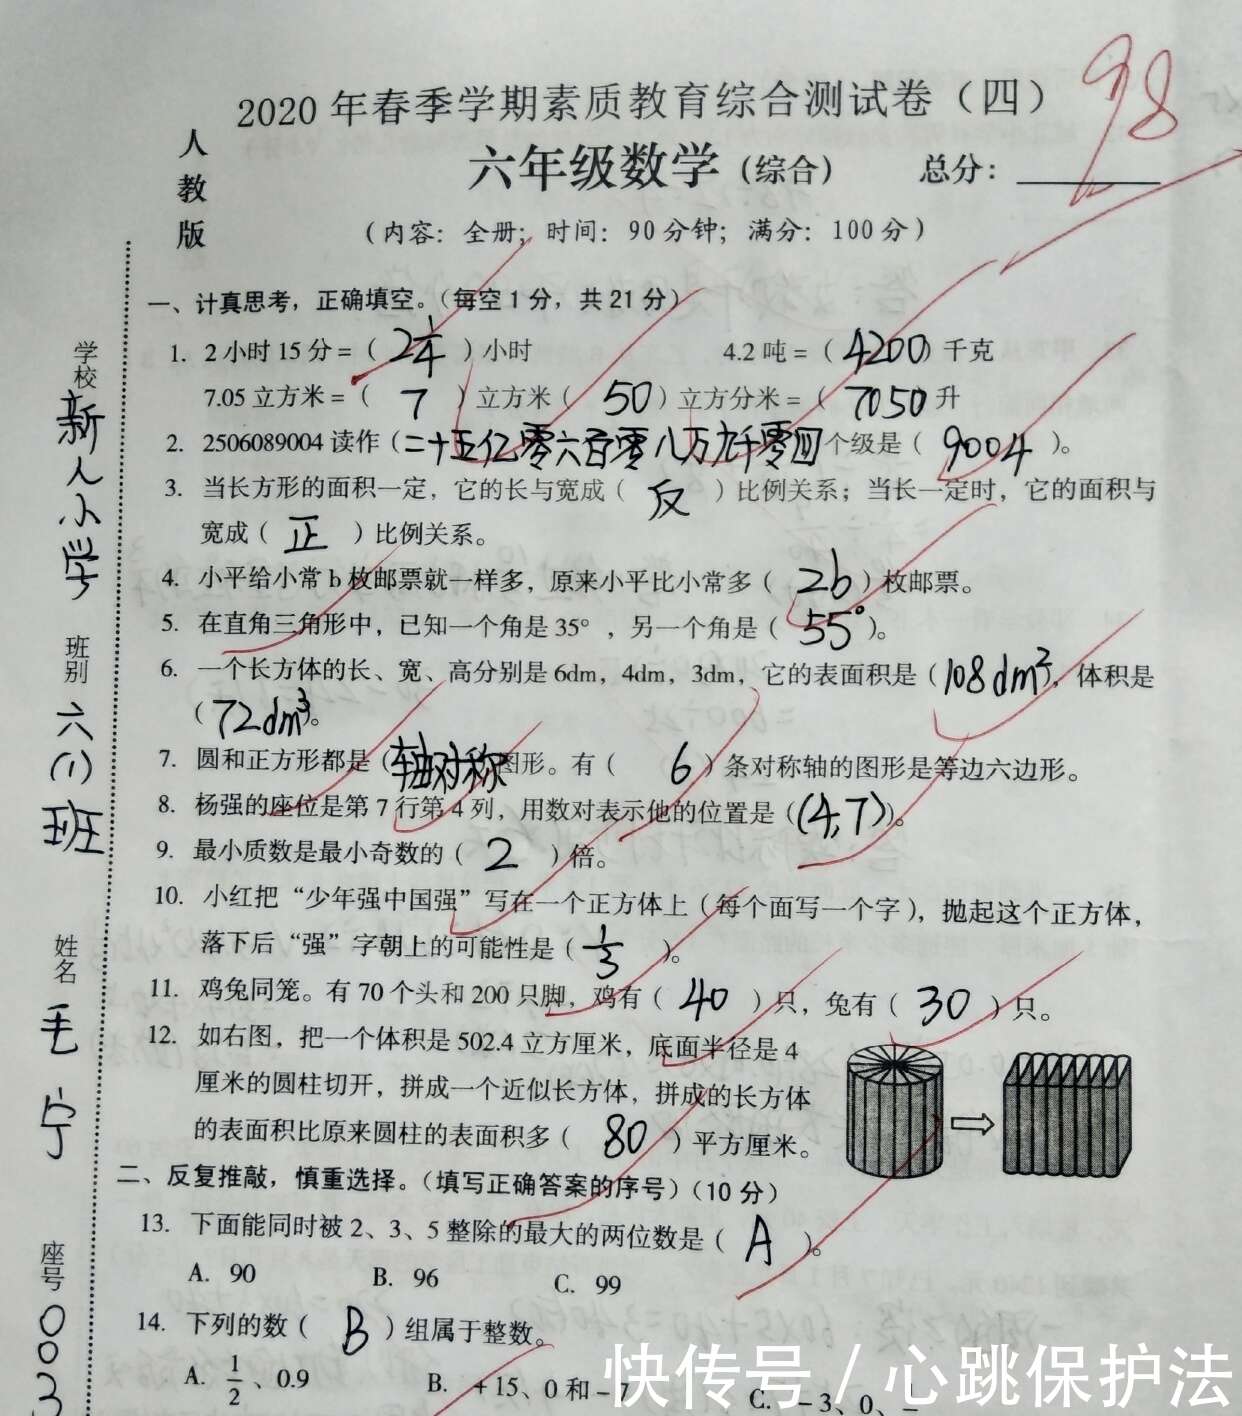 98
2020年春季学期素质教育综合测试卷（四）
人教版
六年级数学（综合） 总分：
（内容：全册；时间：90分钟；满分：100分）
一、计真思考，正确填空。（每空1分，共21分）
1. 2小时15分=（ 2 1/4 ）小时 4.2吨=（ 4200 ）千克
7.05立方米=（ 7 ）立方米（ 50 ）立方分米=（ 7050 升
2. 2506089004读作（二十五亿零六百零八万九千零四 个级是（ 9004 ）。
3. 当长方形的面积一定，它的长与宽成（ 反 ）比例关系；当长一定时，它的面积与
宽成（ 正 ）比例关系。
4. 小平给小常b枚邮票就一样多，原来小平比小常多（ 2b ）枚邮票。
5. 在直角三角形中，已知一个角是35°，另一个角是（ 55° ）。
6. 一个长方体的长、宽、高分别是6dm，4dm，3dm，它的表面积是（108dm²），体积是
（72dm³）。
7. 圆和正方形都是（轴对称 图形。有（ 6 ）条对称轴的图形是等边六边形。
8. 杨强的座位是第7行第4列，用数对表示他的位置是（(4,7)）。
9. 最小质数是最小奇数的（ 2 ）倍。
10. 小红把“少年强中国强”写在一个正方体上（每个面写一个字），抛起这个正方体，
落下后“强”字朝上的可能性是（ 1/3 ）。
11. 鸡兔同笼。有70个头和200只脚，鸡有（ 40 ）只，兔有（ 30 ）只。
12. 如右图，把一个体积是502.4立方厘米，底面半径是4
厘米的圆柱切开，拼成一个近似长方体，拼成的长方体
的表面积比原来圆柱的表面积多（ 80 ）平方厘米。
二、反复推敲，慎重选择。（填写正确答案的序号）（10分）
13. 下面能同时被2、3、5整除的最大的两位数是（ A ）。
A. 90 B. 96 C. 99
14. 下列的数（ B ）组属于整数。
A. 1/2、0.9 B. +15、0和-7 C. -3、0、
学校 新人小学
班别 六(1)班
姓名 毛宁
座号 003
快传号/心跳保护法